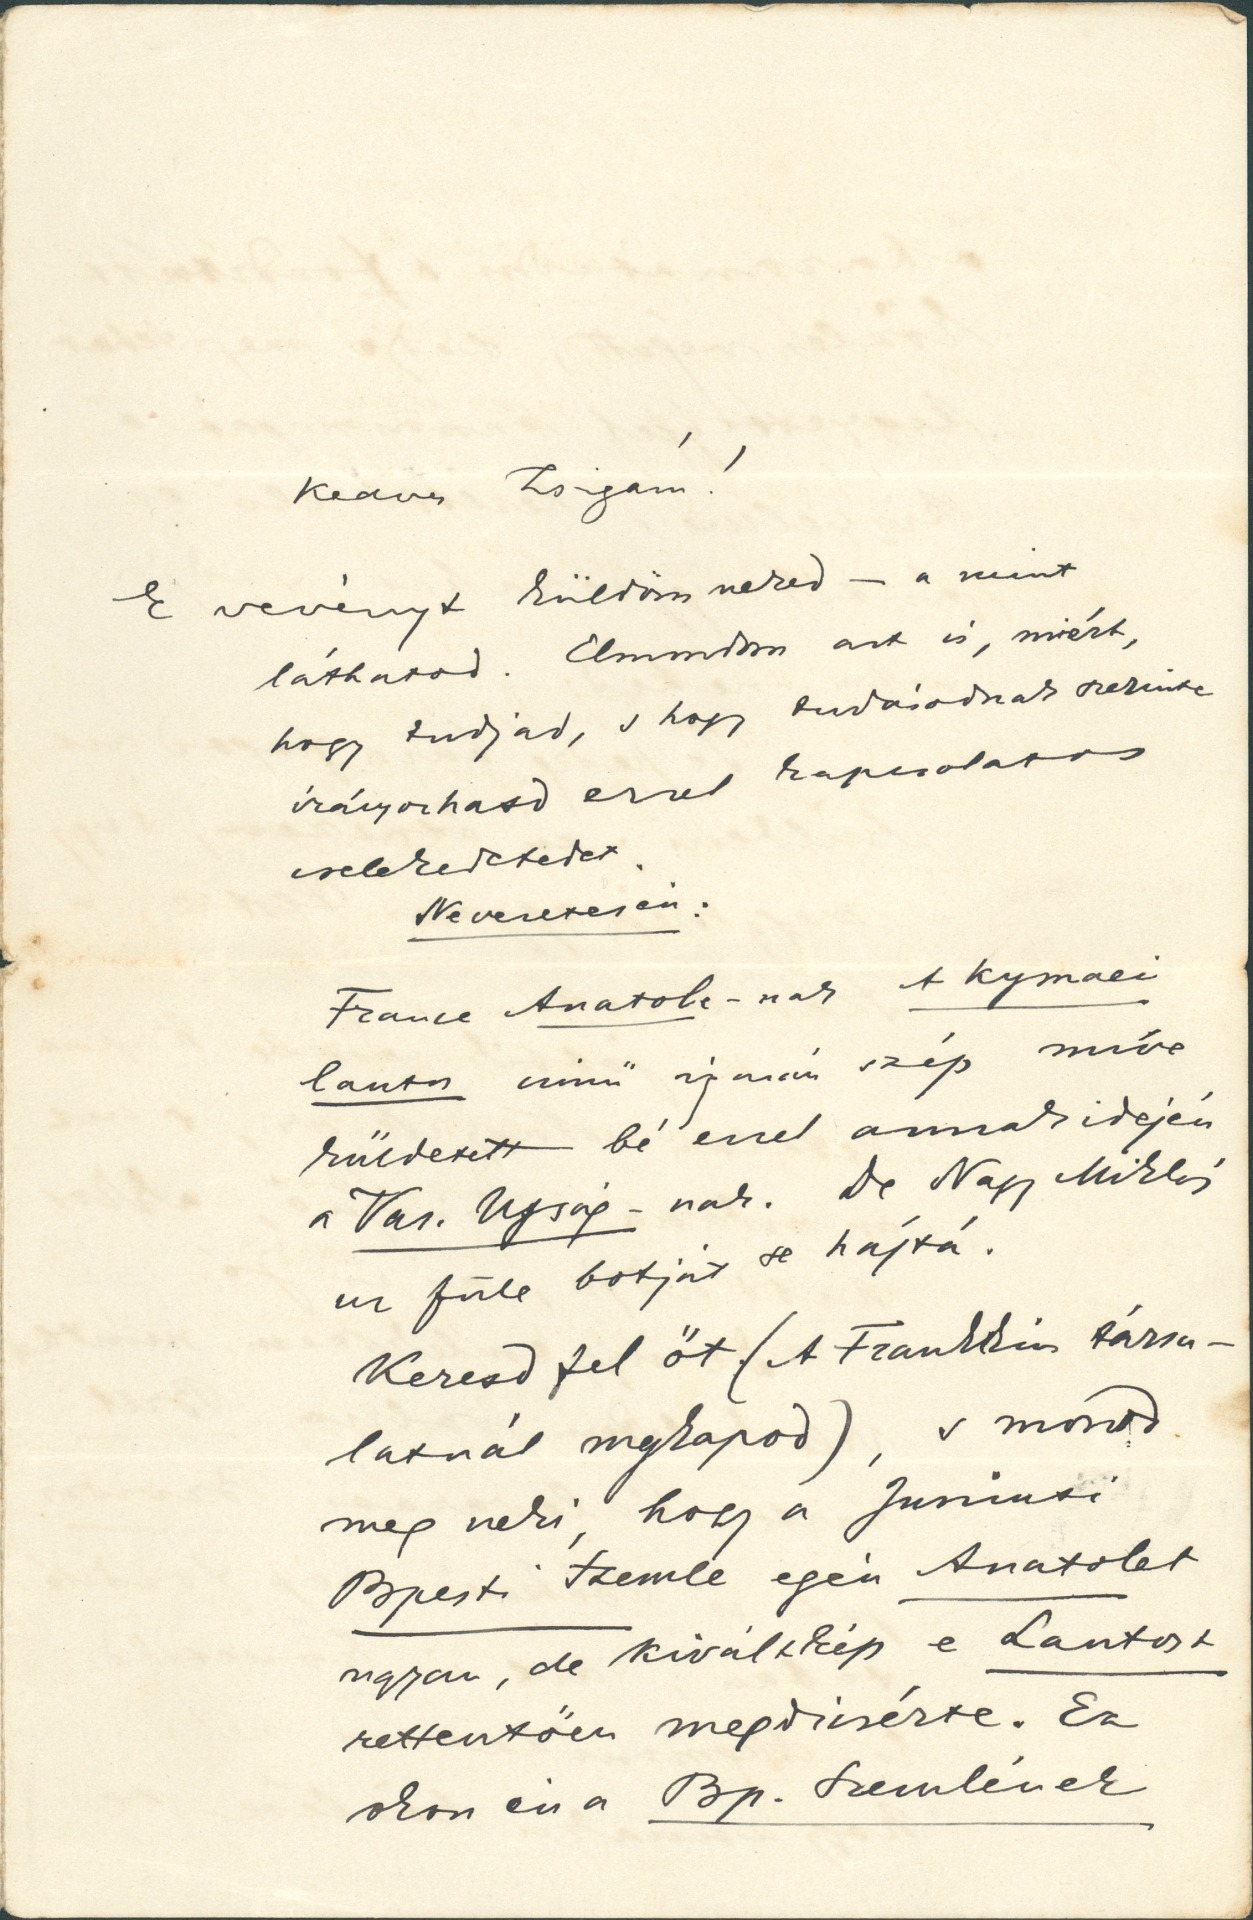 Kedves Zsigám!
E vevényt küldöm neked – a mint
láthatod. Elmondom azt is, miért,
hogy tudjad, s hogy tudásodnak szerinte
irányozhasd ezzel kapcsolatos
cselekedetedet.
Nevezetesen:
France Anatole-nak A kymaei
lantos cimü igazán szép műve
küldetett bé ezzel annak idején
a Vas. Ujság-nak. De Nagy Miklós
ur füle botját se hajtá.
Keresd fel őt (A Franklin társu-
latnál megkapod), s mondd
meg neki, hogy a Juniusi
Bpesti Szemle egén Anatolet
ugyan, de kiváltkép e Lantost
rettentően megdicsérte. Ez
okon én a Bp. Szemlének